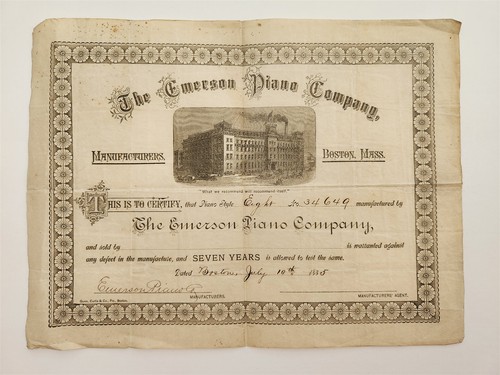 The Emerson Piano Company,
MANUFACTURERS,
BOSTON, MASS.
THIS IS TO CERTIFY, that Piano Style Eight No 34649 manufactured by
The Emerson Piano Company,
and sold by is warranted against
any defect in the manufacture, and SEVEN YEARS is allowed to test the same.
Dated Boston July 10th 1885
Emerson Piano Co
MANUFACTURERS. MANUFACTURERS' AGENT.